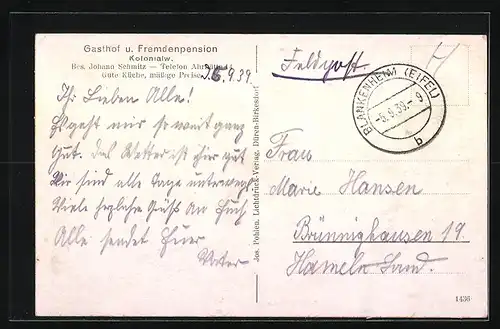 Gasthof u. Fremdenpension
Kolonialw.
Bes. Johann Schmitz — Telefon
Gute Küche, mäßige Preise.
6.9.39
Ihr Lieben Alle!
Es geht mir so weit ganz
gut. Das Wetter ist hier gut
Wir sind alle Tage unterwegs
Viele herzliche Grüße an Euch
Alle sendet Euer
Vater
Jos. Pohlen, Lichtdruck-Verlag, Düren-Birkesdorf
Feldpost.
BLANKENHEIM (EIFEL)
-6.9.39.-9
b
Frau
Marie Hansen
Brünnighausen 19.
Hameln Land.
1436